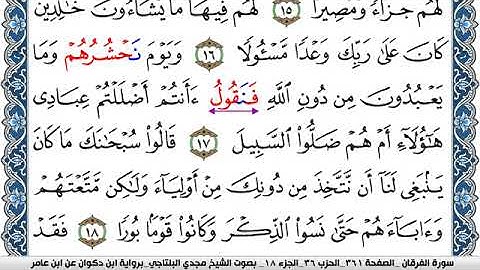 لَهُمۡ جَزَآءٗ وَمَصِيرٗا ١٥ لَّهُمۡ فِيهَا مَا يَشَآءُونَ خَٰلِدِينَۚ
كَانَ عَلَىٰ رَبِّكَ وَعۡدٗا مَّسۡـُٔولٗا ١٦ وَيَوۡمَ نَحۡشُرُهُمۡ وَمَا
يَعۡبُدُونَ مِن دُونِ ٱللَّهِ فَنَقُولُ ءَأَنتُمۡ أَضۡلَلۡتُمۡ عِبَادِي
هَٰٓؤُلَآءِ أَمۡ هُمۡ ضَلُّواْ ٱلسَّبِيلَ ١٧ قَالُواْ سُبۡحَٰنَكَ مَا كَانَ
يَنۢبَغِي لَنَآ أَن نَّتَّخِذَ مِن دُونِكَ مِنۡ أَوۡلِيَآءَ وَلَٰكِن مَّتَّعۡتَهُمۡ
وَءَابَآءَهُمۡ حَتَّىٰ نَسُواْ ٱلذِّكۡرَ وَكَانُواْ قَوۡمَۢا بُورٗا ١٨ فَقَدۡ
سورة الفرقان_ الصفحة ٣٦١_ الحزب ٣٦_ الجزء ١٨_ بصوت الشيخ مجدي البلتاجي_برواية ابن ذكوان عن ابن عامر